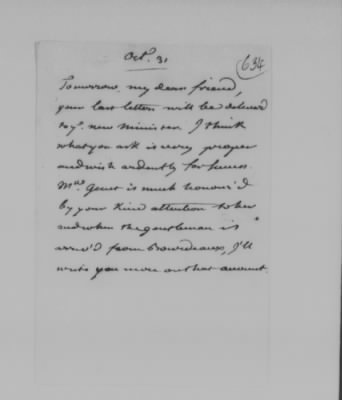 Oct. 31
634
Tomorrow, my dear friend,
your last letter will be deliver'd
to yr. new Minister. I think
what you ask is very proper
and wish ardently for success.
Mde. Genet is much honour'd
by your kind attention to her
and when the gentleman is
arriv'd from Bourdeaux, I'll
write you more on that account.